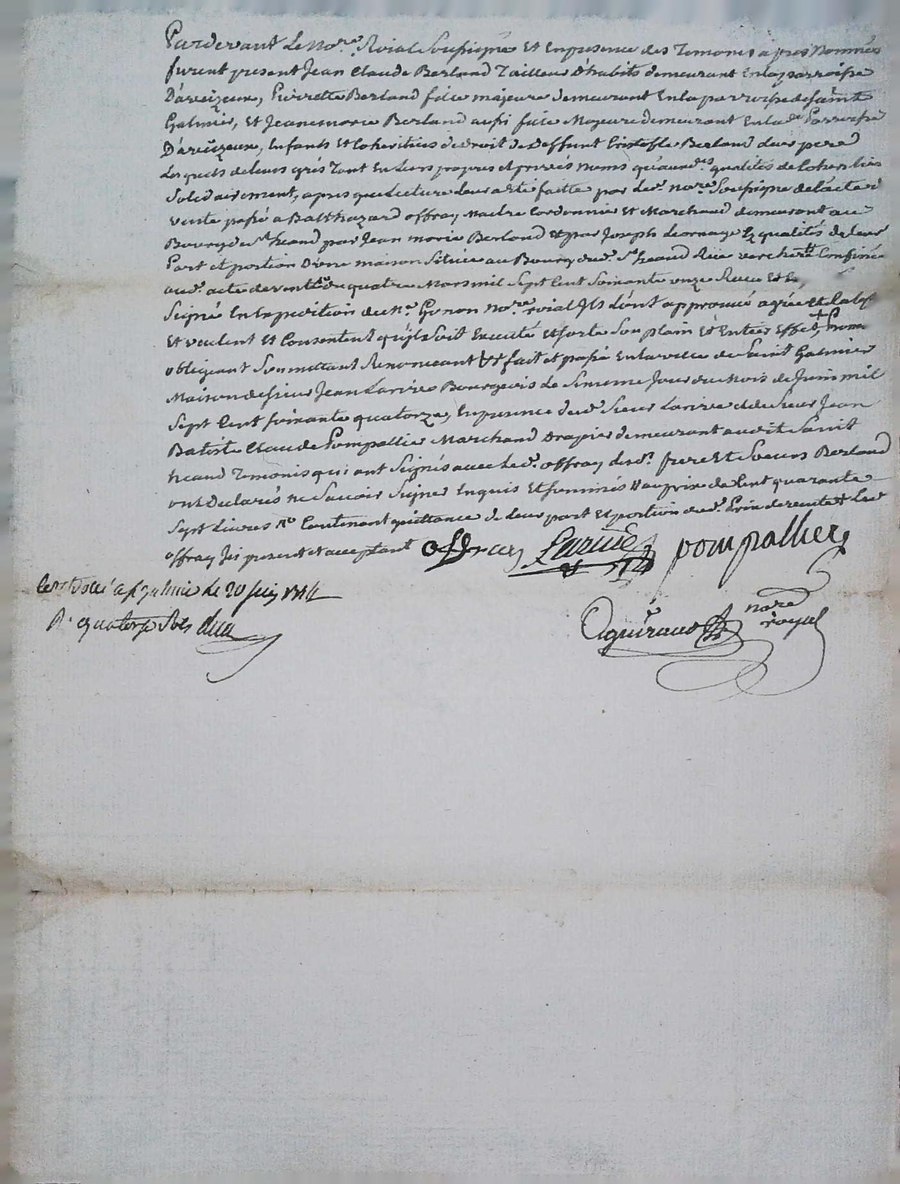 Pardevant Le No.re Roial Sousigné Et En presence des Temoins apres Nommés
furent present Jean Claude Berland Tailleur D'habits demeurant En la parroisse
D'aveizeux, Pierrette Berland fille majeure demeurant En la parroisse de saint
Galmier, Et Jeanne marie Berland aussi fille Majeure demeurant En lad.e Parroisse
D'aveizeux, Enfants Et Coheritiers de droit de deffunt Cristofle Berland leur pere
Lesquels de leurs grés Tant En leurs propres et privés noms qu'aud.es qualités de Coheritiers
Solidairement, apres que lecture leur a Eté faitte par led. No.re Soussigné de l'acte de
vente passé a Balthazard offray Maitre Cordonnier Et Marchand demeurant au
Bourg de St heand par Jean marie Berland Et par Joseph qualités de leur
Part et portion D'une maison Située au Bourg dud. St heand Rue Confinée
aud. acte de vente du quatre Mars mil Sept Cent Soixante onze Receu Et
Seigné En Expedition de M.e No.re roial Ils L'ont approuvé agréé Et
Et veulent Et Consentent qu'il Soit Executé Et sorte Son plain Et Entier Effet,
obligeant Soumettant Renonceant &.t fait et passé En la ville de Saint Galmier
Maison de Sieur Jean Larive Bourgeois Le Jour du Mois de Juin mil
Sept Cent Soixante quatorze, En presence dud. Sieur Larive et de Sieur Jean
Batiste Claude Pompallier Marchand Drapier demeurant audit Saint
heand Temoins qui ont Seignés avec led. offray Lesd. frere Et Soeurs Berland
ont Declarés ne Scavoir Seigner Enquis Et Sommés au prix de Cent quarante
Sept Livres Contenant quittance de leur part Et portion dud. Prix de vente led.
offray Ici present et acceptant offray Larive pompallier
Le 20 juin 1774
R. quatorze Sols
Aguiraud no.re royal